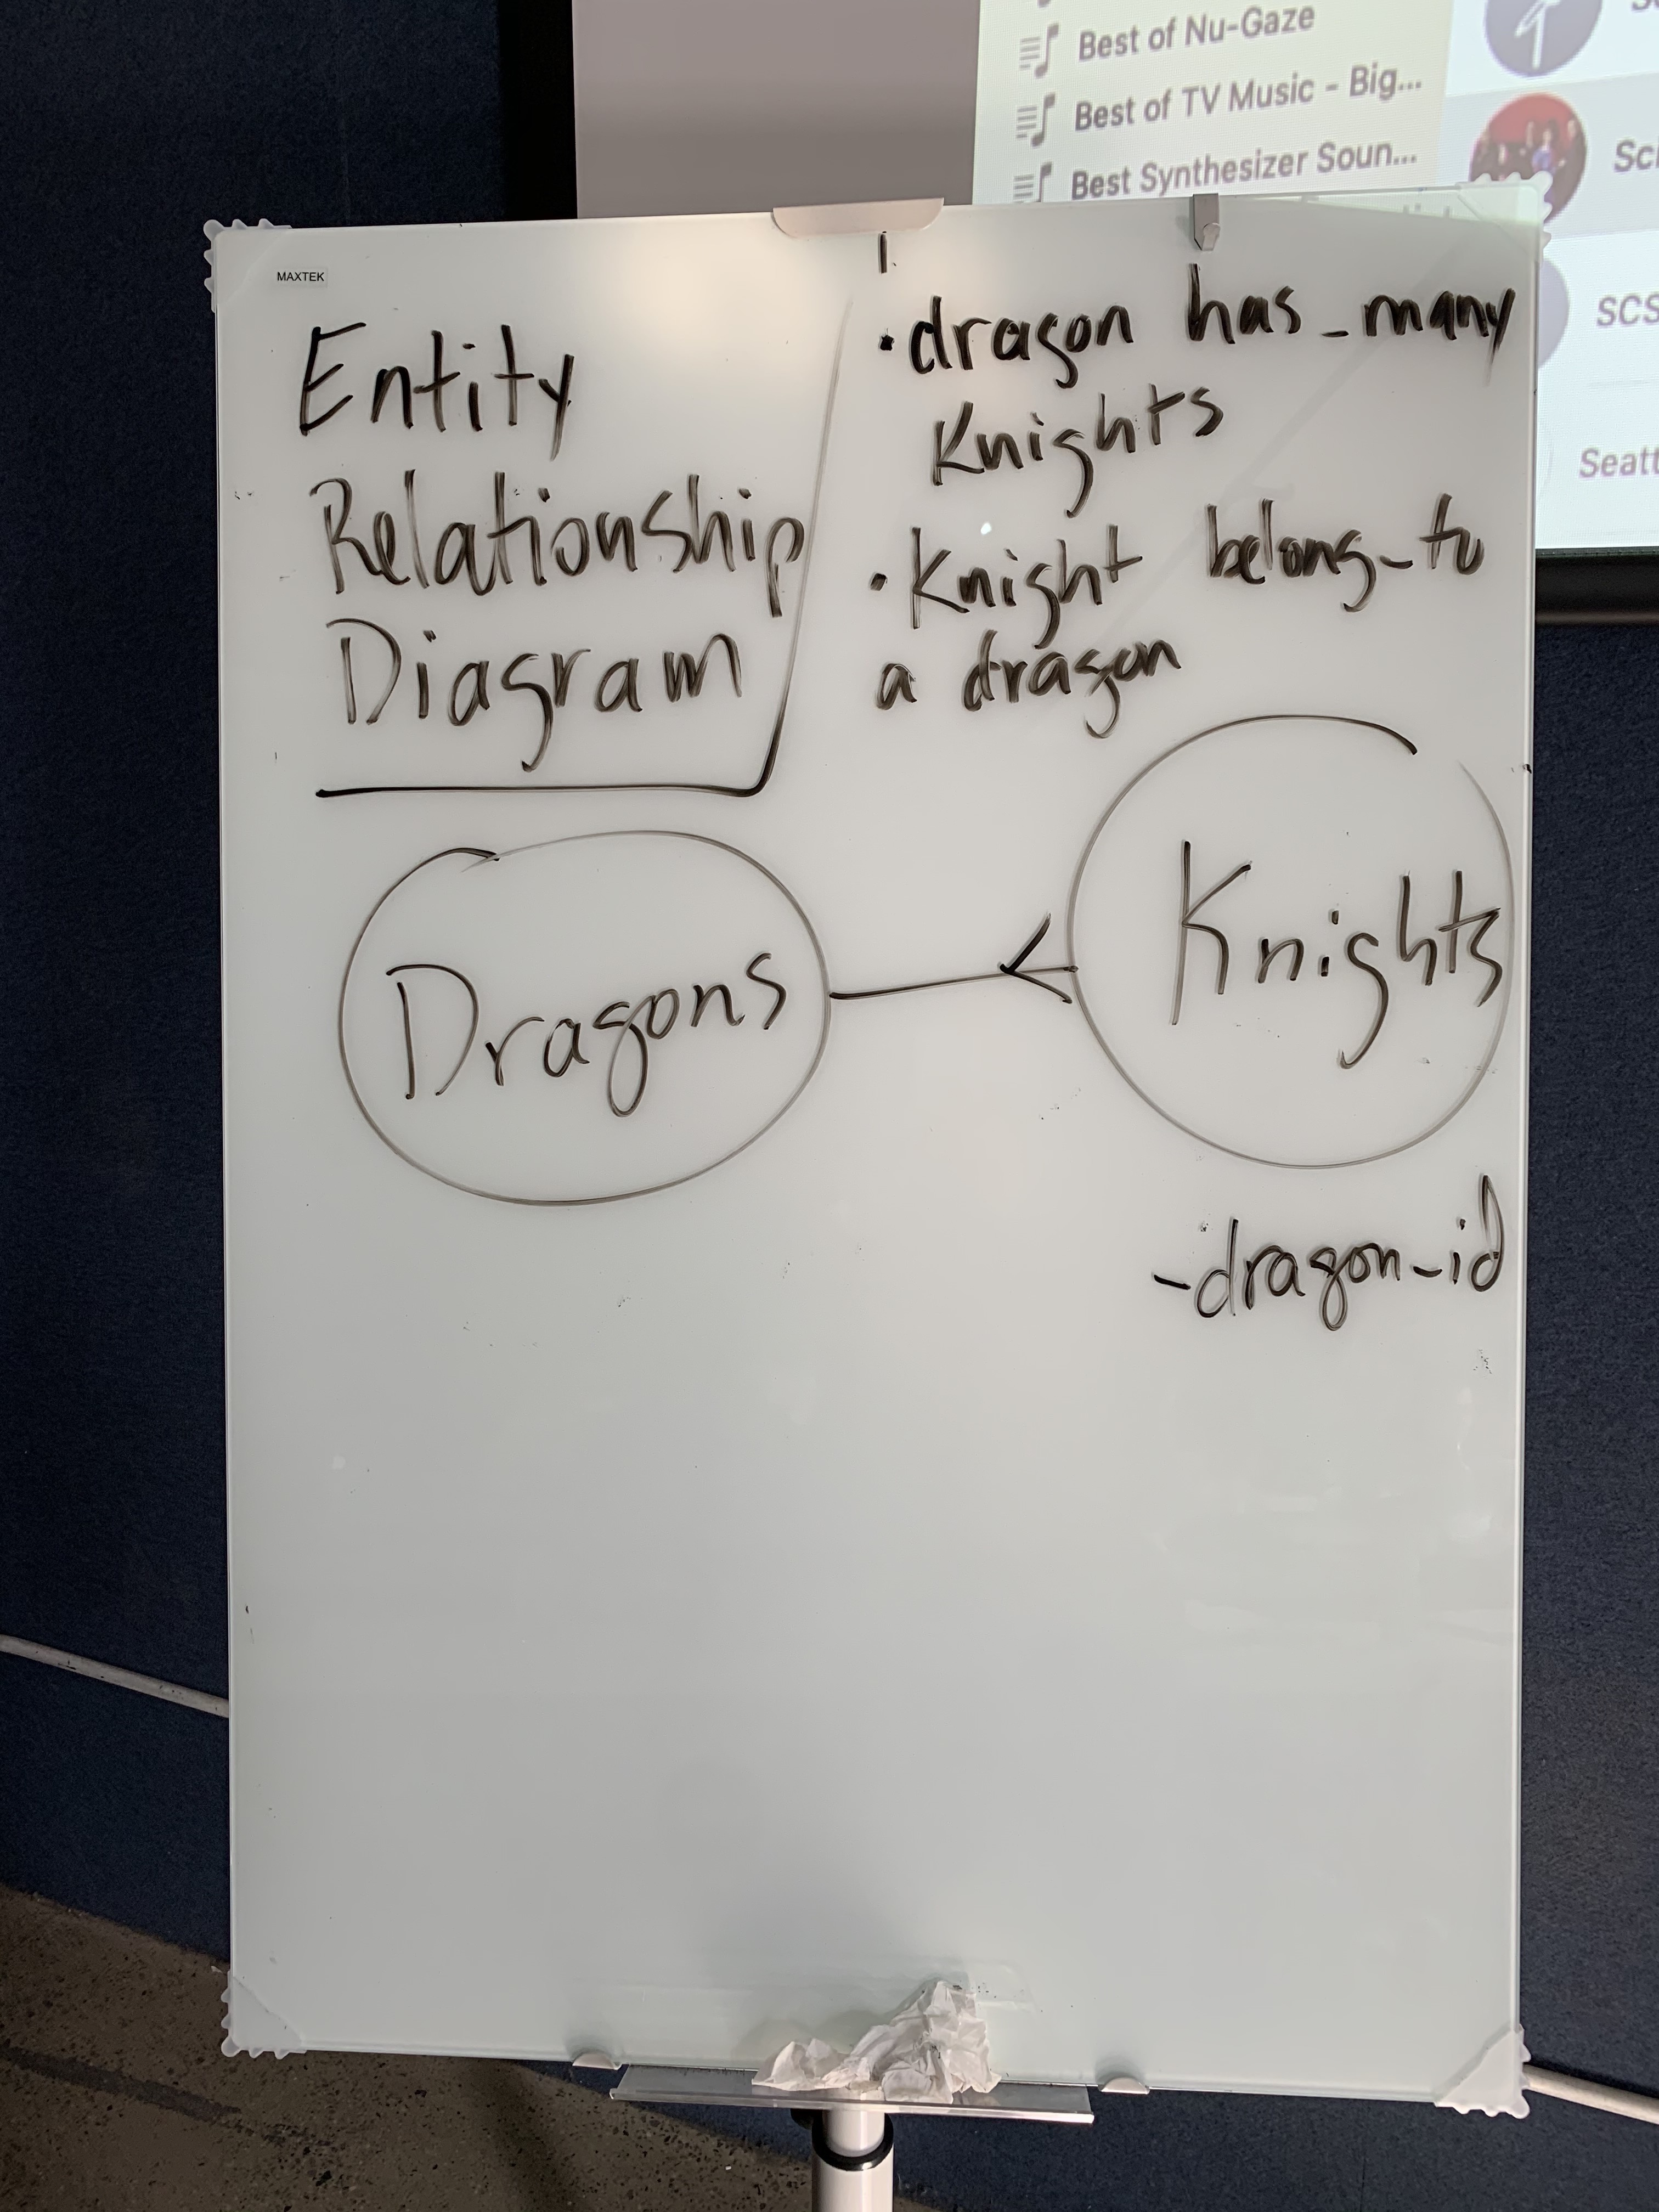 Best of Nu-Gaze
Best of TV Music - Big...
Best Synthesizer Soun...
SCS
Seatt
MAXTEK
Entity
Relationship
Diagram
•dragon has_many
Knights
•Knight belong_to
a dragon
Dragons
Knights
-dragon_id